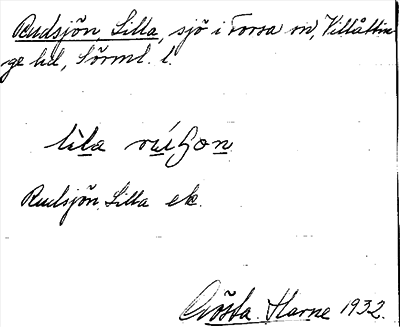 Rudsjön, Lilla, sjö i Forsa sn, Villåttin
ge hd, Sörml. l.
lila
Rudsjön, Lilla ek.
Gösta Harne 1932.